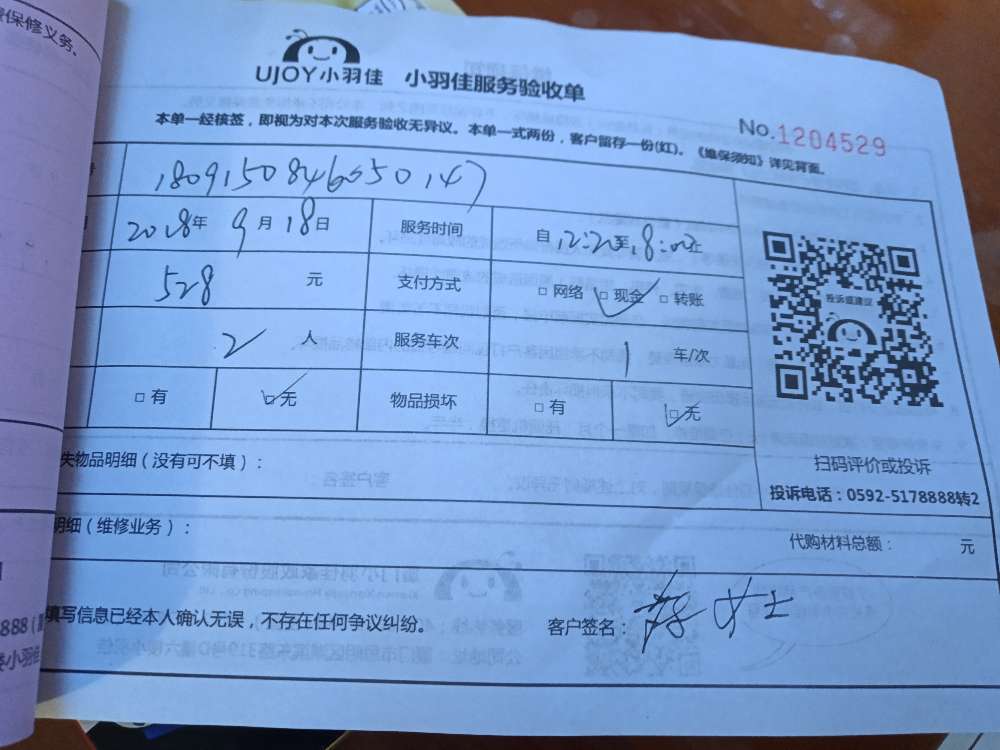 保修义务。
UJOY小羽佳 小羽佳服务验收单
No.1204529
本单一经核签，即视为对本次服务验收无异议。本单一式两份，客户留存一份(红)。《维保须知》详见背面。
2018年9月18日 服务时间 自12:20至18:00止
528元 支付方式 □网络 □现金 □转账
投诉或建议
2人 服务车次 1车/次
□有 □无 物品损坏 □有 □无
失物品明细（没有可不填）：
扫码评价或投诉
投诉电话：0592-5178888转2
明细（维修业务）：
代购材料总额： 元
填写信息已经本人确认无误，不存在任何争议纠纷。 客户签名： 女士
888
小羽佳